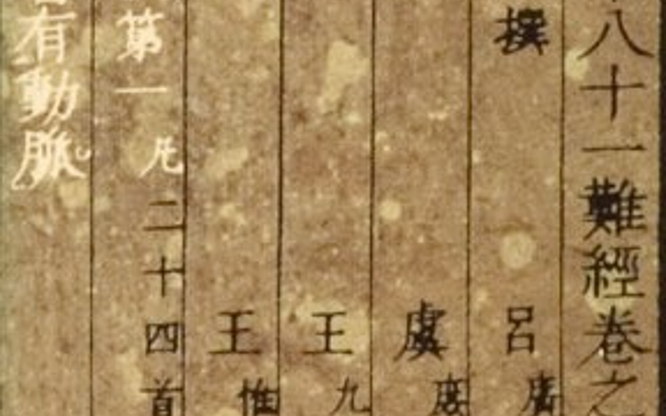 八十一難經卷之
撰 呂廣
虞庶
王九
王惟
第一 凡二十四首
有動脉